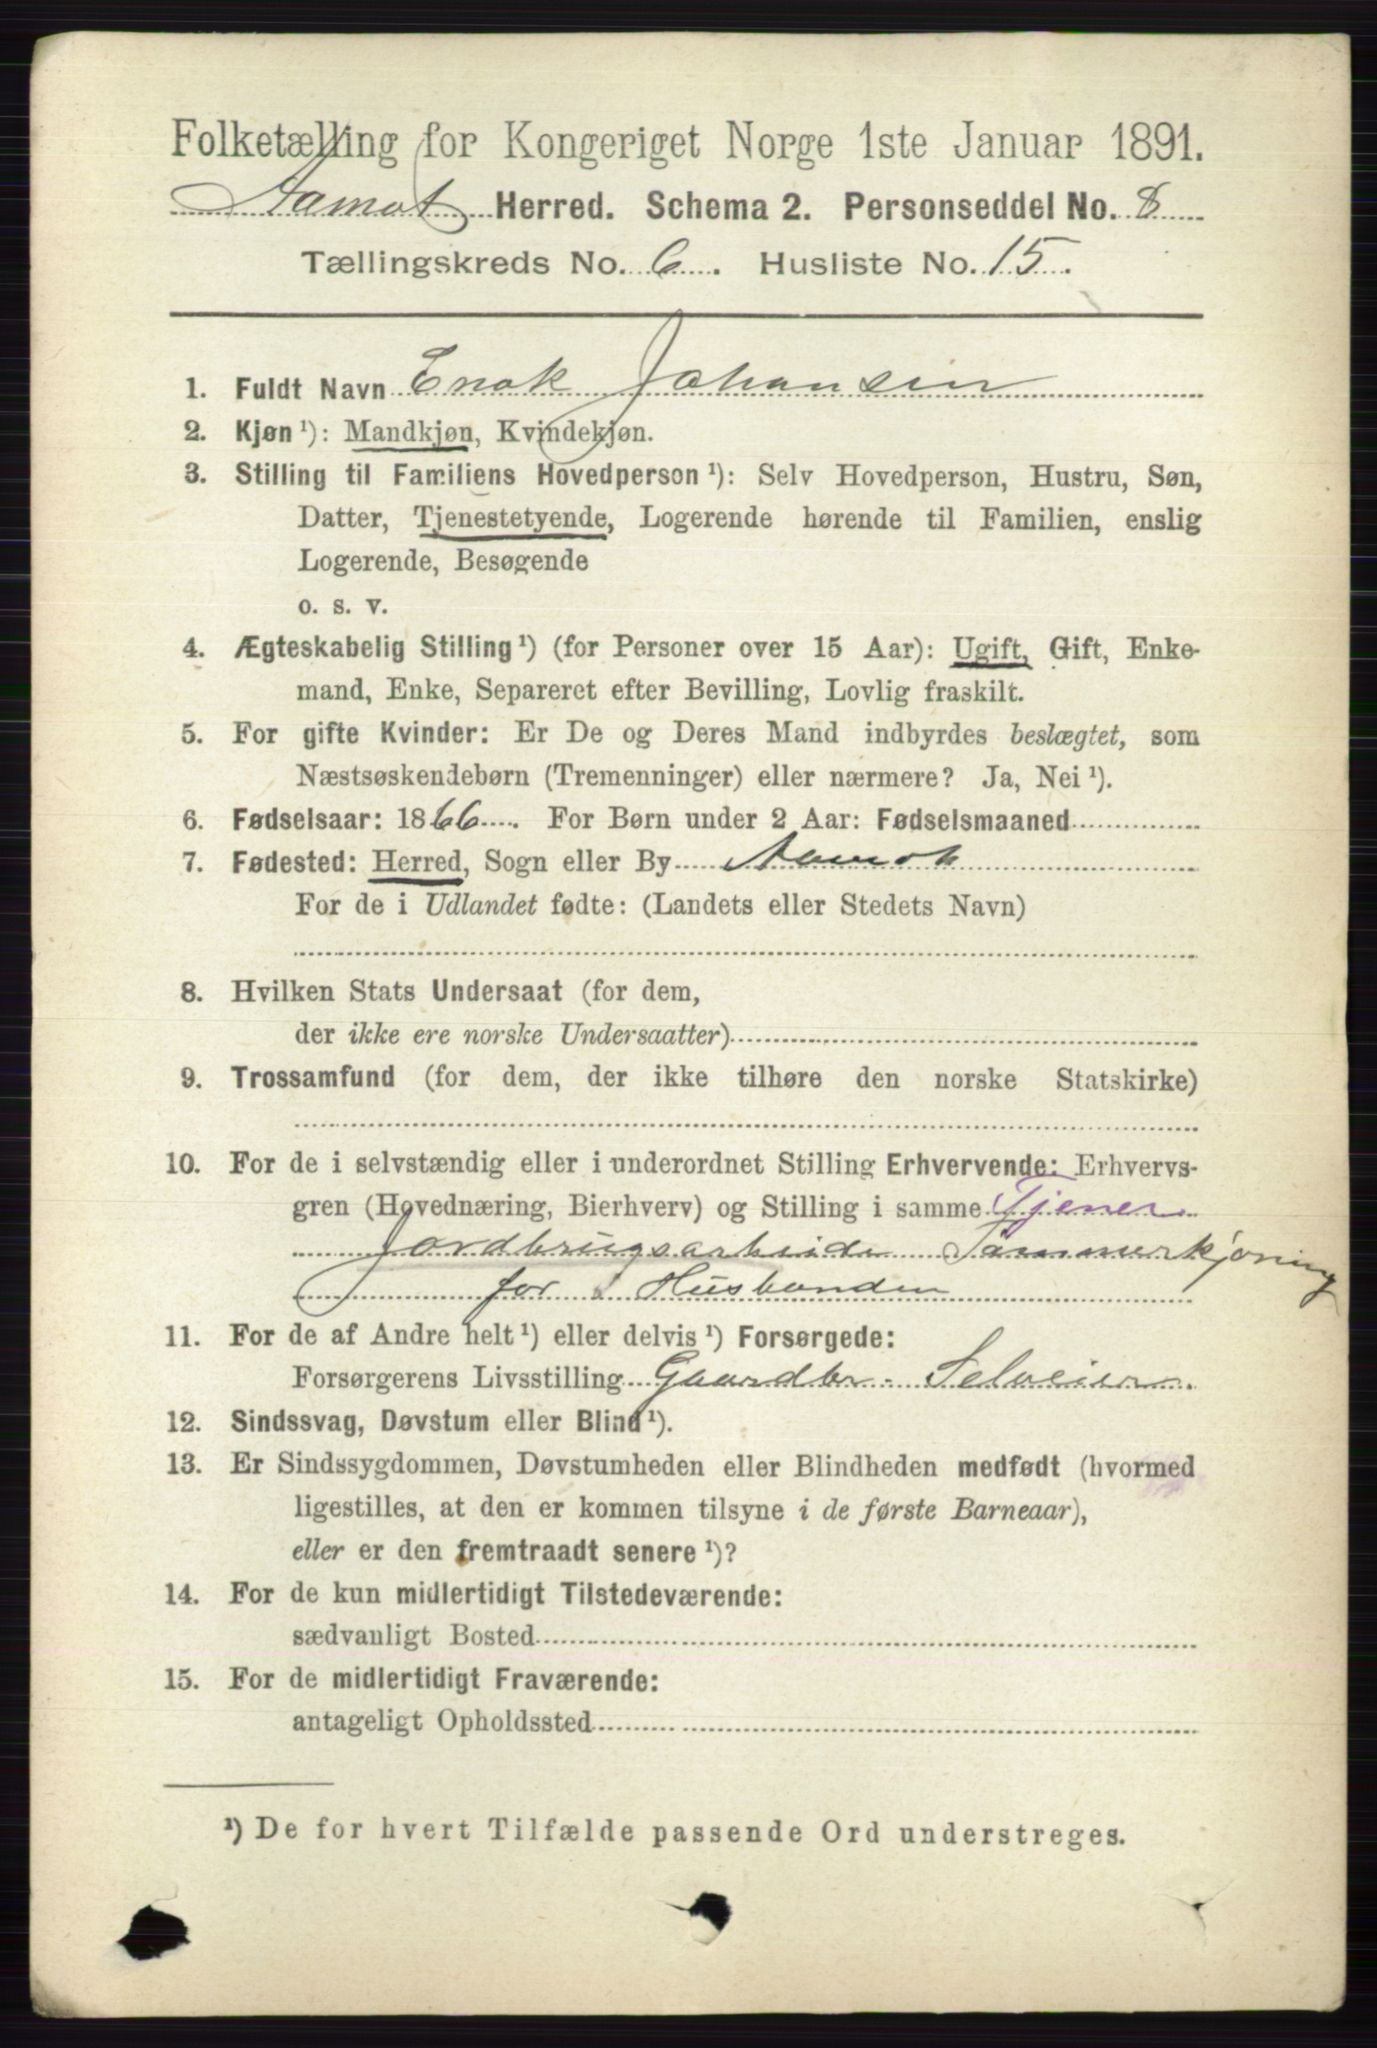 Folketælling for Kongeriget Norge 1ste Januar 1891.
Aamot Herred. Schema 2. Personseddel No. 8
Tællingskreds No. 6. Husliste No. 15.
1. Fuldt Navn Enok Johansen
2. Kjøn ¹): Mandkjøn, Kvindekjøn.
3. Stilling til Familiens Hovedperson ¹): Selv Hovedperson, Hustru, Søn,
Datter, Tjenestetyende, Logerende hørende til Familien, enslig
Logerende, Besøgende
o. s. v.
4. Ægteskabelig Stilling ¹) (for Personer over 15 Aar): Ugift, Gift, Enke-
mand, Enke, Separeret efter Bevilling, Lovlig fraskilt.
5. For gifte Kvinder: Er De og Deres Mand indbyrdes beslægtet, som
Næstsøskendebørn (Tremenninger) eller nærmere? Ja, Nei ¹).
6. Fødselsaar: 1866. For Børn under 2 Aar: Fødselsmaaned
7. Fødested: Herred, Sogn eller By Aamot
For de i Udlandet fødte: (Landets eller Stedets Navn)
8. Hvilken Stats Undersaat (for dem,
der ikke ere norske Undersaatter)
9. Trossamfund (for dem, der ikke tilhøre den norske Statskirke)
10. For de i selvstændig eller i underordnet Stilling Erhvervende: Erhvervs-
gren (Hovednæring, Bierhverv) og Stilling i samme Tjener
Jordbrugsarbeide Tømmerkjøring
for Husbonden
11. For de af Andre helt ¹) eller delvis ¹) Forsørgede:
Forsørgerens Livsstilling Gaardbr. Selveier
12. Sindssvag, Døvstum eller Blind ¹).
13. Er Sindssygdommen, Døvstumheden eller Blindheden medfødt (hvormed
ligestilles, at den er kommen tilsyne i de første Barneaar),
eller er den fremtraadt senere ¹)?
14. For de kun midlertidigt Tilstedeværende:
sædvanligt Bosted
15. For de midlertidigt Fraværende:
antageligt Opholdssted
¹) De for hvert Tilfælde passende Ord understreges.